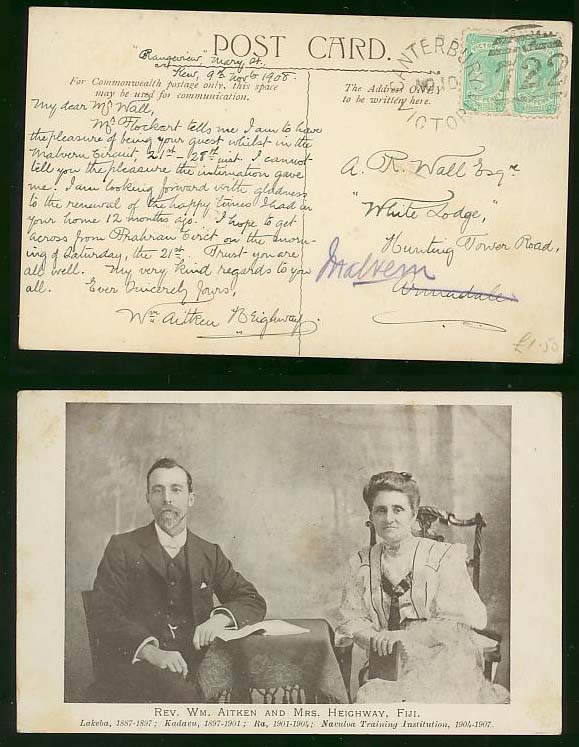 POST CARD.
"Rangeview," Mary St.,
Kew, 9th Novbr 1908.
For Commonwealth postage only, this space
may be used for communication.
The Address ONLY
to be written here.
My dear Mr Wall,
Mr Flockart tells me I am to have
the pleasure of being your guest whilst in the
Malvern Circuit, 21st – 28th inst. I cannot
tell you the pleasure the intimation gave
me. I am looking forward with gladness
to the renewal of the happy times I had in
your home 12 months ago. I hope to get
across from Prahran Circt on the morn-
ing of Saturday, the 21st. Trust you are
all well. My very kind regards to you
all. Ever Sincerely Yours,
Wm Aitken Heighway.
CANTERBURY
NO 10
VICTORIA
722
A. R. Wall Esqre
"White Lodge,"
Hunting Tower Road,
Armadale
Malvern
£1.50
REV. WM. AITKEN AND MRS. HEIGHWAY, FIJI.
Lakeba, 1887-1897; Kadavu, 1897-1901; Ra, 1901-1904; Navuloa Training Institution, 1904-1907.